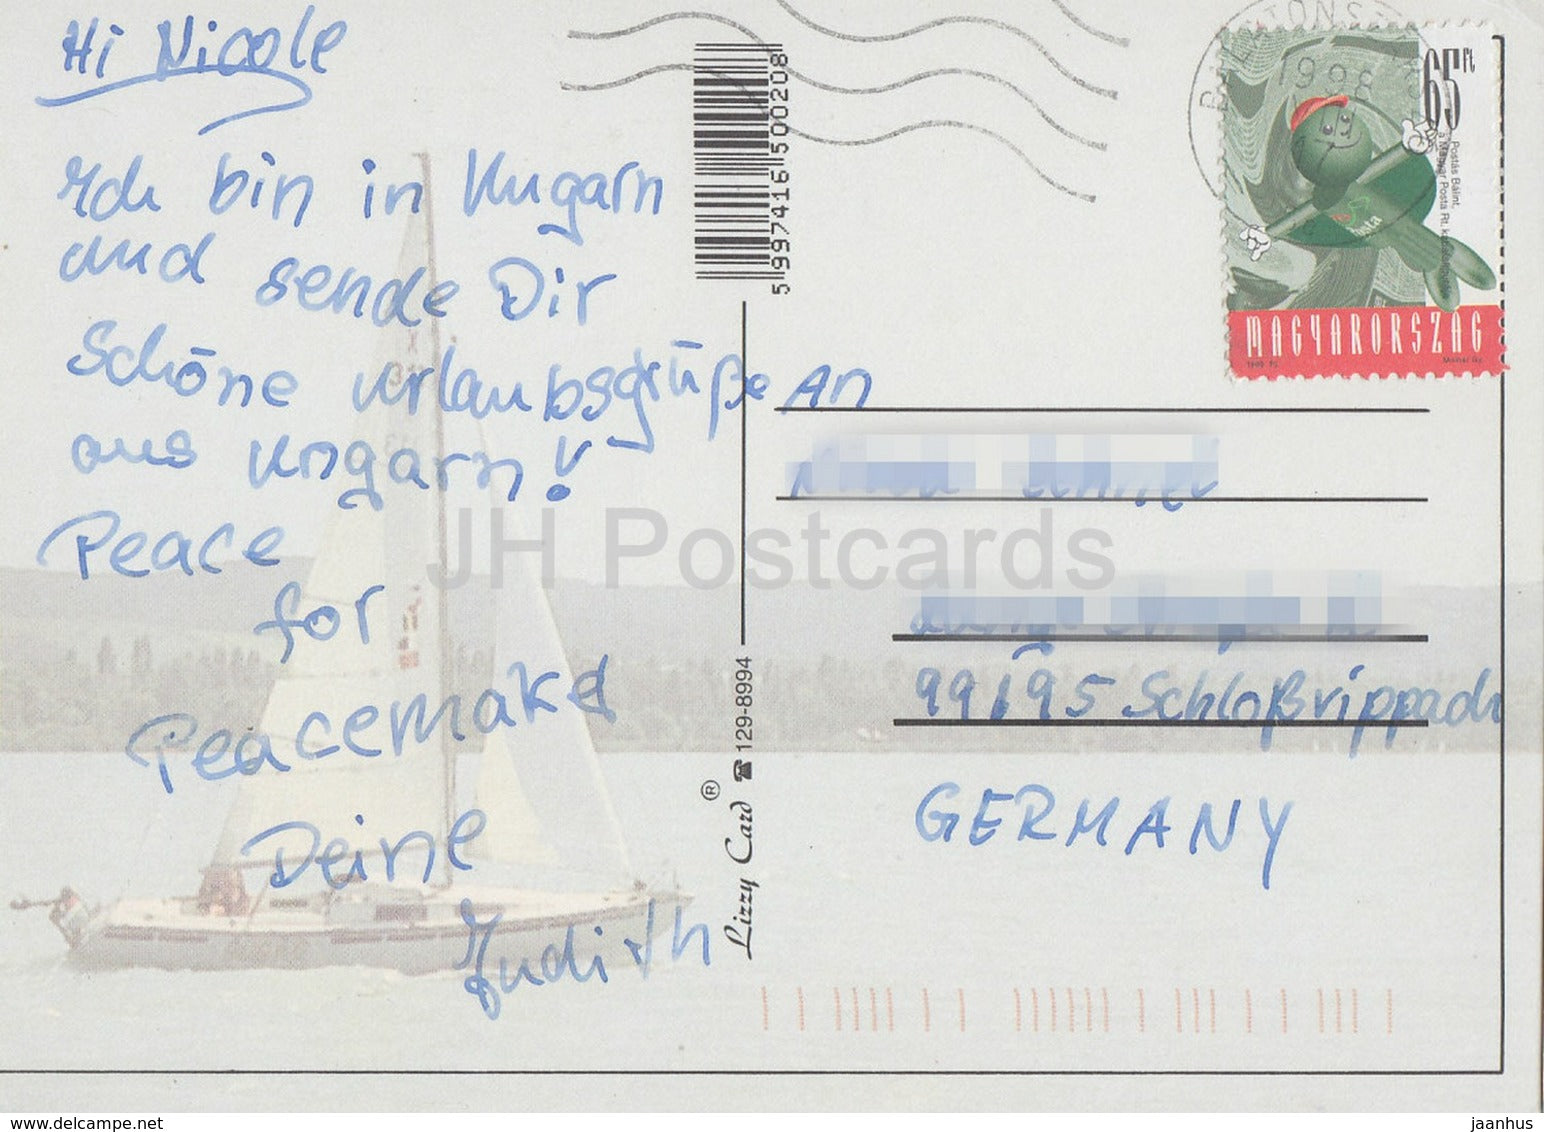 Hi Nicole
Ich bin in Ungarn
und sende Dir
Schöne Urlaubsgrüße
aus Ungarn!
Peace
for
Peacemaka
Deine
Judith
5 997416 500208
Lizzy Card ® ☎ 129-8994
1998
65 Ft
Postás Bálint,
MAGYARORSZÁG
An
99195 Schloßvippach
GERMANY
JH Postcards
www.delcampe.net
jaanhus